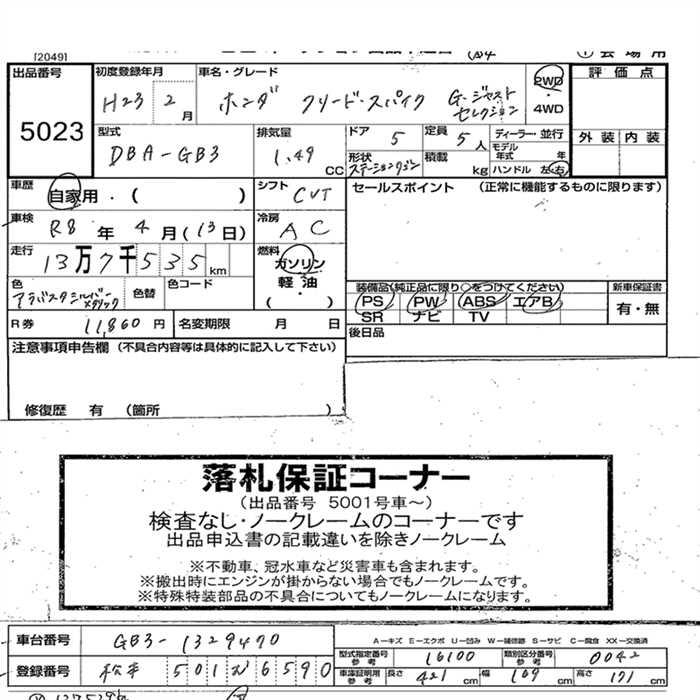 [2049]
出品番号
5023
初度登録年月
H23 2月
車名・グレード
ホンダ フリード・スパイク G・ジャスト
セレクション
2WD
・
4WD
評価点
外装 内装
型式
DBA-GB3
排気量
1.49 CC
ドア 5
定員 5人
ディーラー・並行
形状 ステーションワゴン
積載 kg
モデル年式 年
ハンドル 左・右
車歴
自家用・( )
シフト CVT
セールスポイント (正常に機能するものに限ります)
車検
R8年 4月(13日)
冷房 AC
走行
13万7千535km
燃料
ガソリン
軽油
( ・ )
色
アラバスタシルバー
メタリック
色替
色コード
装備品(純正品に限り○をつけてください)
PS PW ABS エアB
SR ナビ TV
新車保証書
有・無
R券 11,860円
名変期限 月 日
後日品
注意事項申告欄 (不具合内容等は具体的に記入して下さい)
修復歴 有 (箇所 )
落札保証コーナー
(出品番号 5001号車~)
検査なし・ノークレームのコーナーです
出品申込書の記載違いを除きノークレーム
※不動車、冠水車など災害車も含まれます。
※搬出時にエンジンが掛からない場合でもノークレームです。
※特殊特装部品の不具合についてもノークレームになります。
車台番号 GB3-1329470
A-キズ E-エクボ U-凹み W-補修跡 S-サビ C-腐食 XX-交換済
型式指定番号 参考 16100
類別区分番号 参考 0042
登録番号 松本 501 む 6590
車庫証明用 参考 長さ 421cm 幅 169cm 高さ 171cm